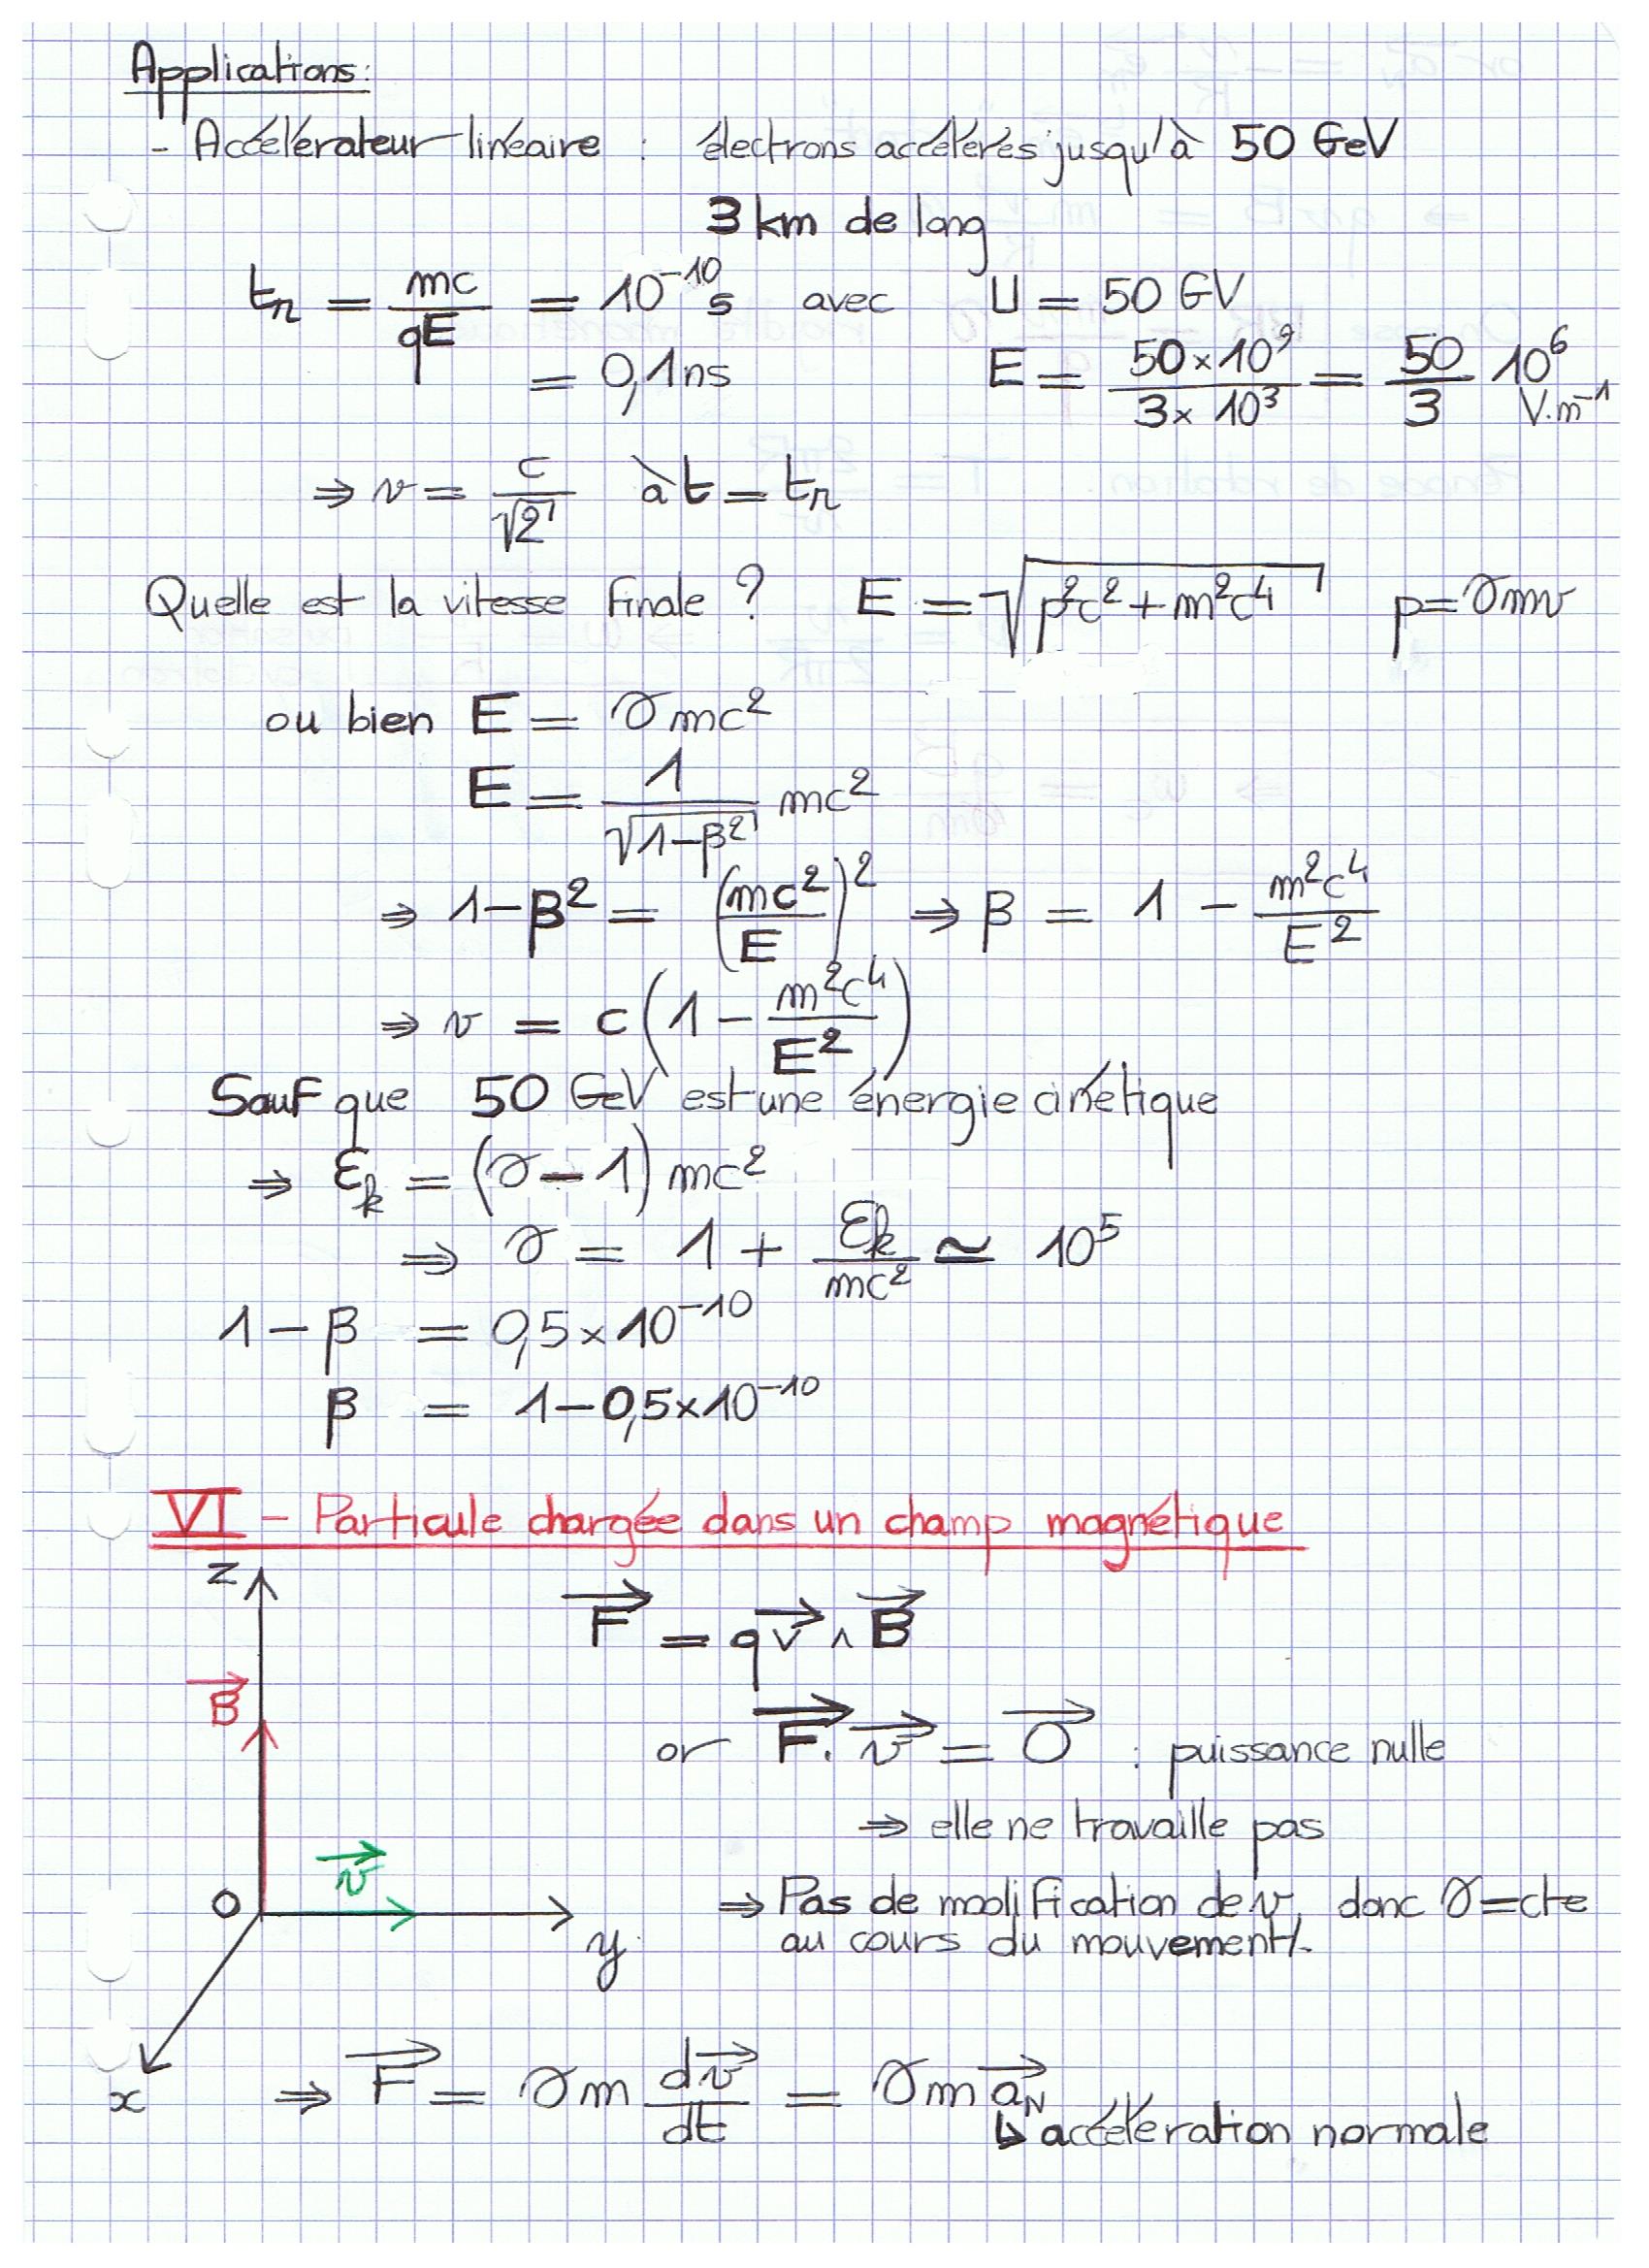 Applications:
- Accélérateur linéaire : électrons accélérés jusqu'à 50 GeV
3 km de long
t_r = mc/qE = 10⁻¹⁰ s avec U = 50 GV
= 0,1 ns E = 50×10⁹/3×10³ = 50/3 10⁶ V.m⁻¹
⇒ v = c/√2 à t = t_r
Quelle est la vitesse finale ? E = √(p²c² + m²c⁴) p = γmv
ou bien E = γmc²
E = 1/√(1-β²) mc²
⇒ 1-β² = (mc²/E)² ⇒ β = 1 - m²c⁴/E²
⇒ v = c(1 - m²c⁴/E²)
Sauf que 50 GeV est une énergie cinétique
⇒ Ɛk = (γ-1) mc²
⇒ γ = 1 + Ɛk/mc² ≃ 10⁵
1-β = 0,5×10⁻¹⁰
β = 1-0,5×10⁻¹⁰
VI - Particule chargée dans un champ magnétique
z
F⃗ = qv⃗ ∧ B⃗
B⃗
or F⃗.v⃗ = 0⃗ : puissance nulle
⇒ elle ne travaille pas
v⃗
O
y
⇒ Pas de modification de v, donc γ=cte
au cours du mouvement.
x
⇒ F⃗ = γm dv⃗/dt = γm a⃗_N
↳ accélération normale